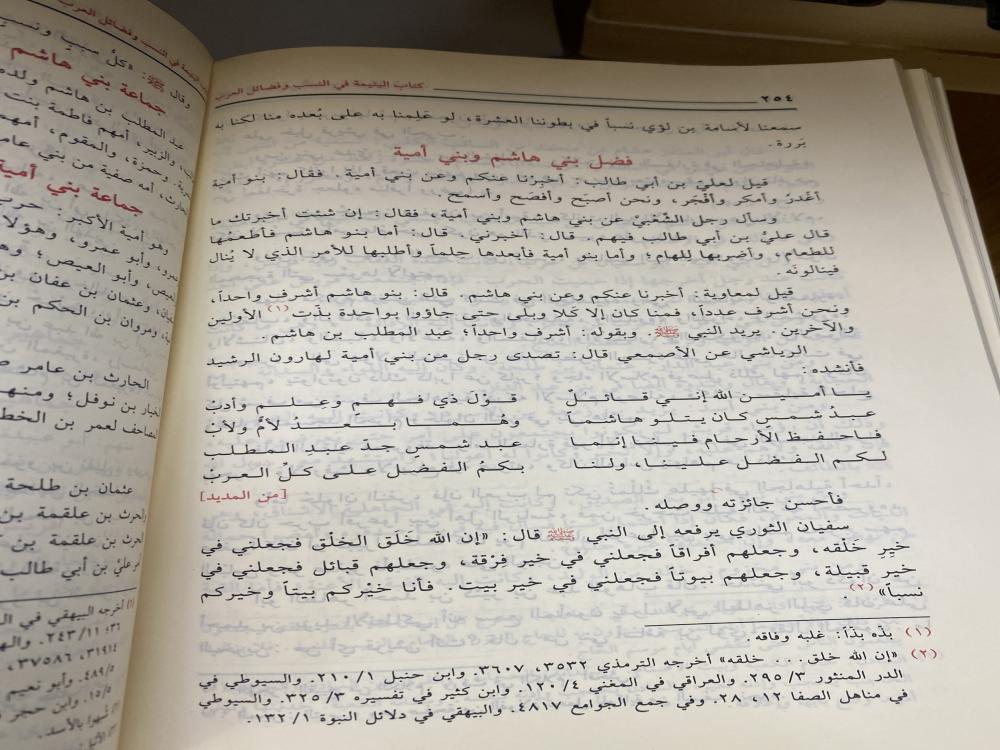 ٢٥٤ كتاب اليتيمة في النسب وفضائل العرب
سمعنا لأسامة بن لؤي نسباً في بطوننا العشرة، لو علمنا به على بُعده منا لكنا به
بررة.
فضل بني هاشم وبني أمية
قيل لعليّ بن أبي طالب: أخبِرْنا عنكم وعن بني أمية. فقال: بنو أمية
أغدرُ وأمكر وأفْجَر، ونحن أصبَح وأفصَح وأسمح.
وسأل رجل الشَّعْبيَّ عن بني هاشم وبني أمية، فقال: إن شئت أخبرتك ما
قال عليُّ بن أبي طالب فيهم. قال: أخبرني. قال: أما بنو هاشم فأطعمُها
للطعام، وأضربها للهام؛ وأما بنو أمية فأبعدها حلماً وأطلبها للأمر الذي لا يُنال
فينالونه.
قيل لمعاوية: أخبرنا عنكم وعن بني هاشم. قال: بنو هاشم أشرف واحداً،
ونحن أشرف عدداً، فمنا كان إلا كَلا وبلى حتى جاؤوا بواحدة بذّت(١) الأولين
والآخرين. يريد النبي ﷺ. وبقوله: أشرف واحداً؛ عبد المطلب بن هاشم.
الرياشي عن الأصمعي قال: تصدى رجل من بني أمية لهارون الرشيد
فأنشده:
يا أمين الله إني قائلٌ قولَ ذي فهمٍ وعلمٍ وأدبْ
عبدُ شمسٍ كان يتلو هاشماً وهُما بعدُ لأمٍّ ولأبْ
فاحفظ الأرحام فينا إنما عبد شمس جدّ عبد المطلب
لكم الفضل علينا، ولنا بكمُ الفضل على كلّ العربْ
[من المديد]
فأحسن جائزته ووصله.
سفيان الثوري يرفعه إلى النبي ﷺ قال: «إن الله خَلَق الخلْق فجعلني في
خيرِ خَلْقه، وجعلهم أفراقاً فجعلني في خير فرْقة، وجعلهم قبائل فجعلني في
خير قبيلة، وجعلهم بيوتاً فجعلني في خير بيت. فأنا خيْركم بيتاً وخيركم
نسباً»(٢).
(١) بذّه بذّاً: غلبه وفاقه.
(٢) «إن الله خلق... خلقه» أخرجه الترمذي ٣٥٣٢، ٣٦٠٧. وابن حنبل ١/ ٢١٠. والسيوطي في
الدر المنثور ٣/ ٢٩٥. والعراقي في المغني ٤/ ١٢٠. وابن كثير في تفسيره ٣/ ٣٢٥. والسيوطي
في مناهل الصفا ١٢، ٢٨. وفي جمع الجوامع ٤٨١٧. والبيهقي في دلائل النبوة ١/ ١٣٢.
وقال ﷺ: «كلُّ سببٍ ونسب
جماعة بني هاشم
عبد المطلب بن هاشم ولده
والزبير، أمهم فاطمة بنت
وحمزة، والمقوم، أمهم
الحارث، أمه صفية من بني عامر
جماعة بني أمية
وهو أمية الأكبر: حرب
وأبو عمرو، وهؤلا
العيص، وأبو العيص؛ وهو
وعثمان بن عفان بن
ومروان بن الحكم بن
الحارث بن عامر
الخيار بن نوفل؛ ومنهم
المصاحف لعمر بن الخط
عثمان بن طلحة
والحرث بن علقمة بن
الحرث بن علقمة بن
عليّ بن أبي طالب
(١) أخرجه البيهقي في ال
٣٦؛ ١١/ ٢٤٣. واله
٣١٩١٤، ٣٧٥٨٦،
٤٨٩/٥. وأبو نعيم
٥/ ١٥. وابن حجر
شُهروا بالأسد.